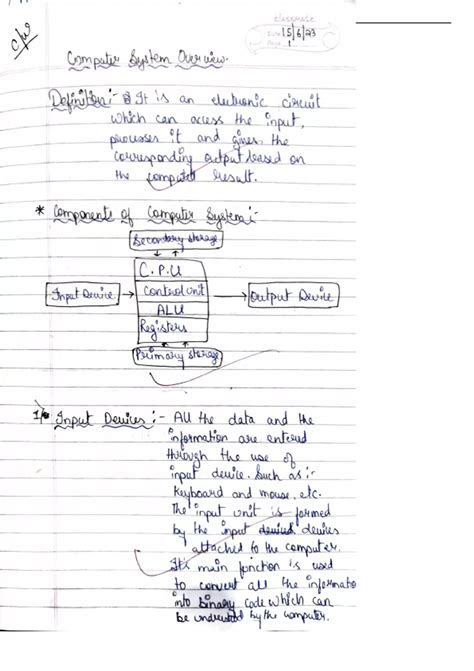 C/W
classmate
Date 15/6/23
Page 1
Computer System Overview.
Definition:- It is an electronic circuit
which can acess the input,
processes it and gives the
corrusponding output based on
the computed result.
* Components of Computer System:-
Secondary storage
C.P.U
Input Device → Control unit → Output Device
ALU
Registers
Primary storage
1. Input Devices:- All the data and the
information are entered
through the use of
input device. Such as:-
Keyboard and mouse, etc.
The input unit is formed
by the input devices
attached to the computer.
It's main function is used
to convert all the informatio
into binary code which can
be understood by the computer.